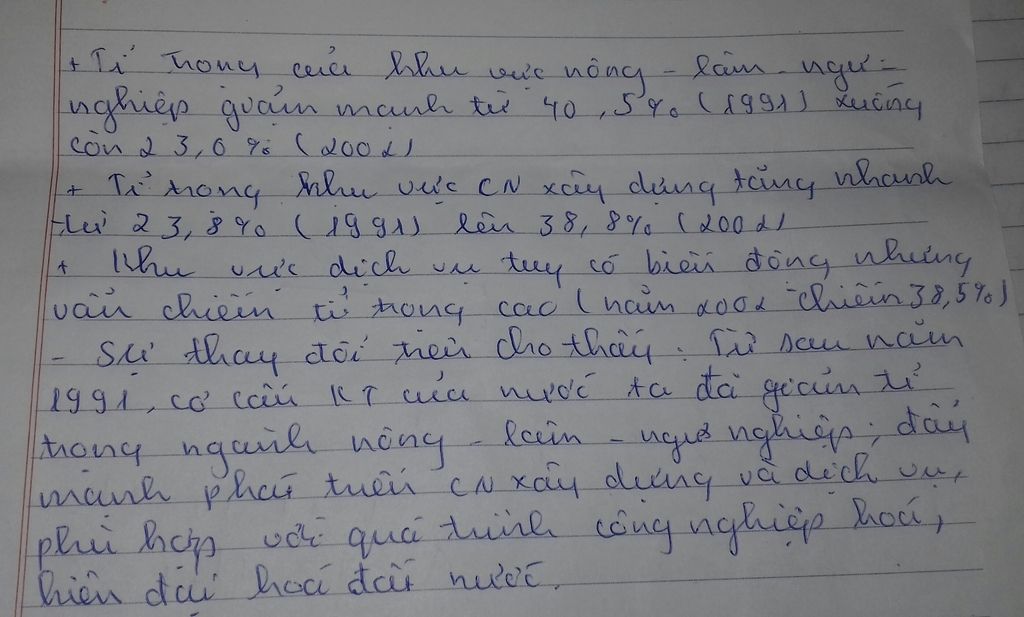 + Tỉ trọng của khu vực nông - lâm - ngư -
nghiệp giảm mạnh từ 40,5% (1991) xuống
còn 23,0% (2002)
+ Tỉ trọng khu vực CN xây dựng tăng nhanh
từ 23,8% (1991) lên 38,8% (2002)
+ Khu vực dịch vụ tuy có biến động nhưng
vẫn chiếm tỉ trọng cao (năm 2002 chiếm 38,5%)
- Sự thay đổi trên cho thấy: Từ sau năm
1991, cơ cấu KT của nước ta đã giảm tỉ
trọng ngành nông - lâm - ngư nghiệp; đẩy
mạnh phát triển CN xây dựng và dịch vụ,
phù hợp với quá trình công nghiệp hoá,
hiện đại hoá đất nước.